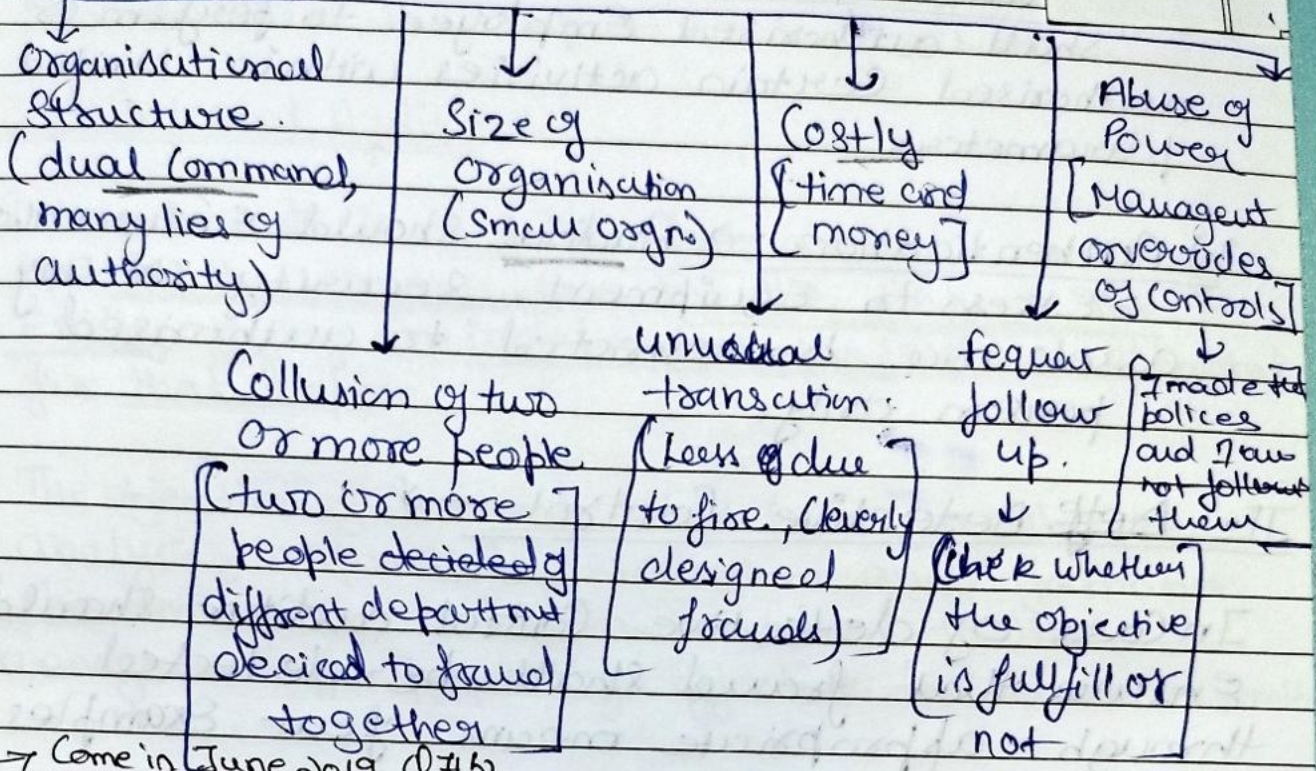 organisational
structure.
(dual Command,
many lies of
authority)
Size of
organisation
(Small orgn.)
Costly
[time and
money]
Abuse of
Power
[Managent
orverodes
of controls]
Collusion of two
or more people
[two or more
people decided of
different departtmnt
decied to fraud
together
unusual
transcation.
(Loss of due
to fire, Cleverly
designed
frauds)
fequar
follow
up.
[Chek whether
the objective
is fullfill or
not
I made the
polices
and I am
not follow
them
→ Come in June 2019 Q7(b)